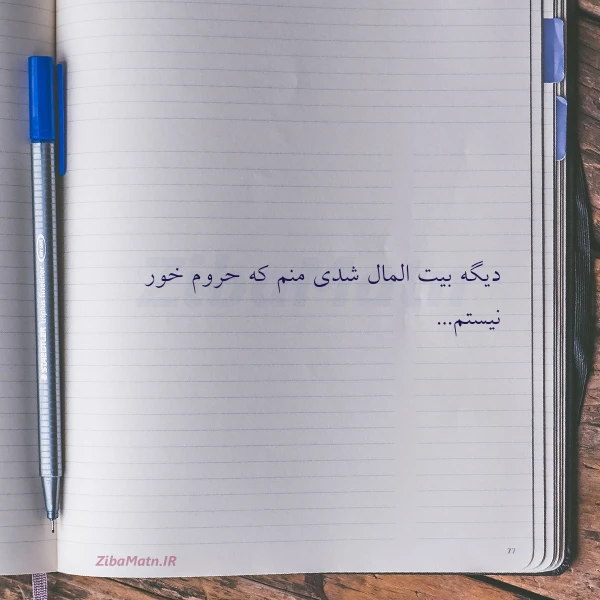 دیگه بیت المال شدی منم که حروم خور
نیستم...
77
ZibaMatn.IR